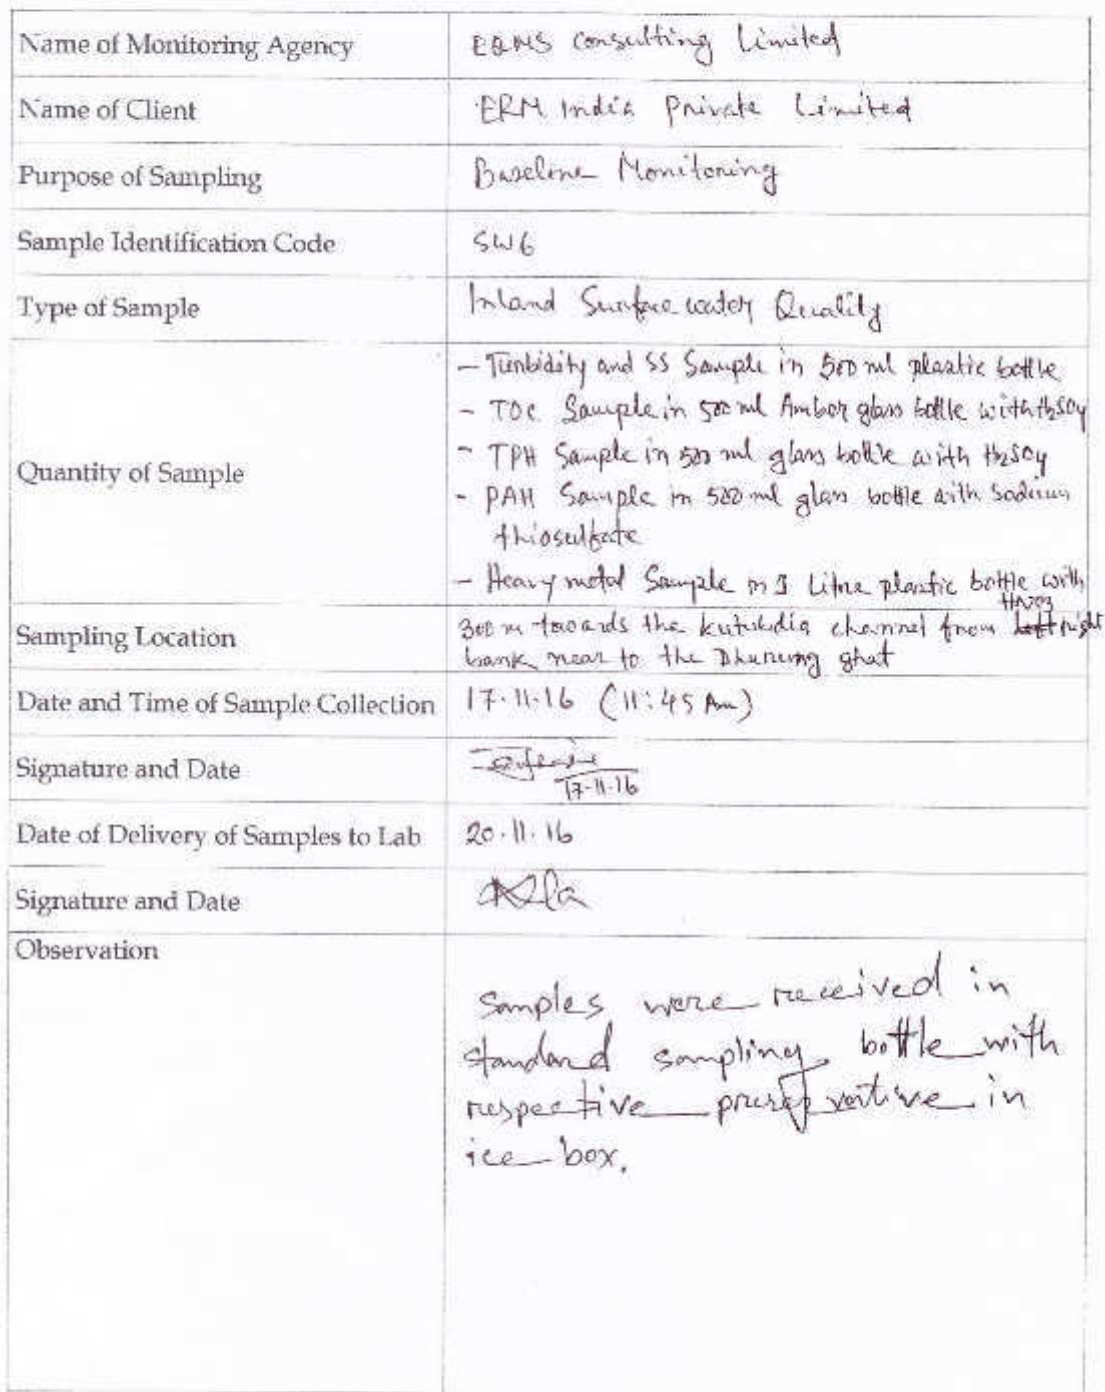 Name of Monitoring Agency EQMS Consulting Limited
Name of Client ERM India Private Limited
Purpose of Sampling Baseline Monitoring
Sample Identification Code SW6
Type of Sample Inland Surface water Quality
Quantity of Sample
- Turbidity and SS Sample in 500 ml plastic bottle
- TOC Sample in 500 ml Amber glass bottle with H2SO4
- TPH Sample in 500 ml glass bottle with H2SO4
- PAH Sample in 500 ml glass bottle with Sodium
thiosulfate
- Heavy metal Sample in 1 Litre plastic bottle with
HNO3
Sampling Location 300 m towards the kutubdia channel from left right
bank near to the Dhurung ghat
Date and Time of Sample Collection 17.11.16 (11:45 Am)
Signature and Date
17.11.16
Date of Delivery of Samples to Lab 20.11.16
Signature and Date
Observation
Samples were received in
standard sampling bottle with
respective preservative in
ice box.